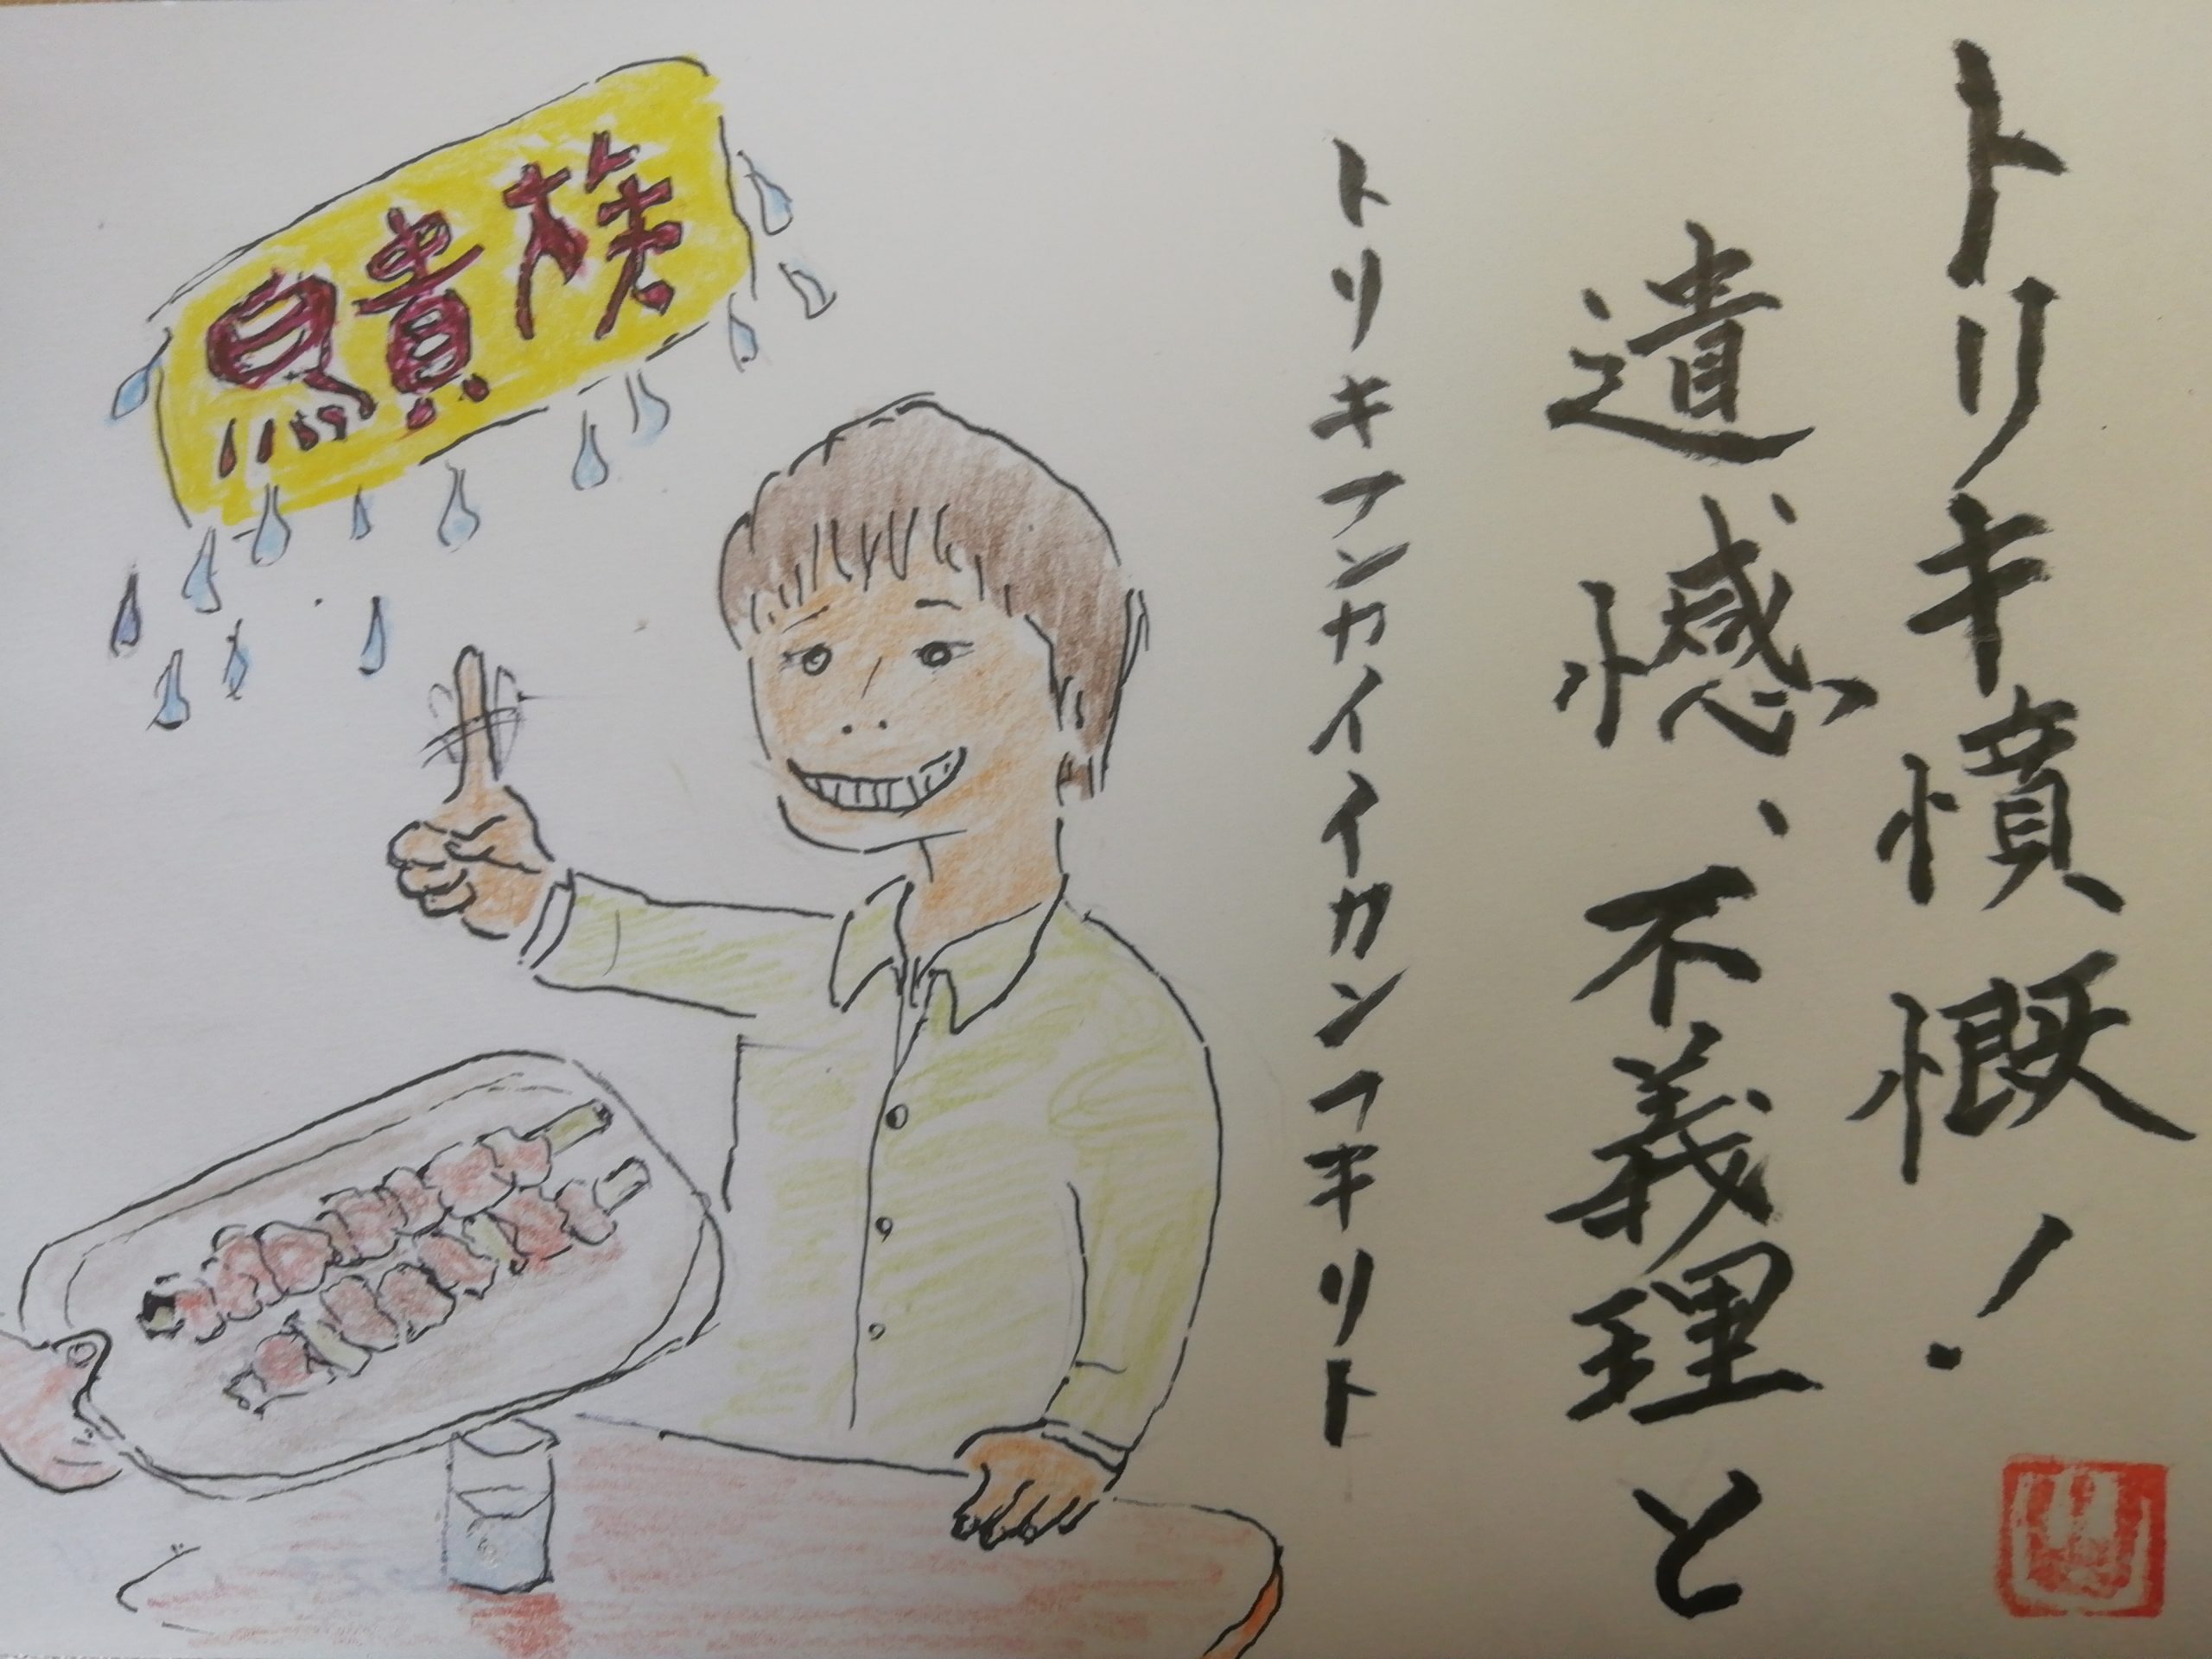 トリキ憤慨!
遺憾、不義理と
トリキフンカイイカンフキリト
鳥貴族